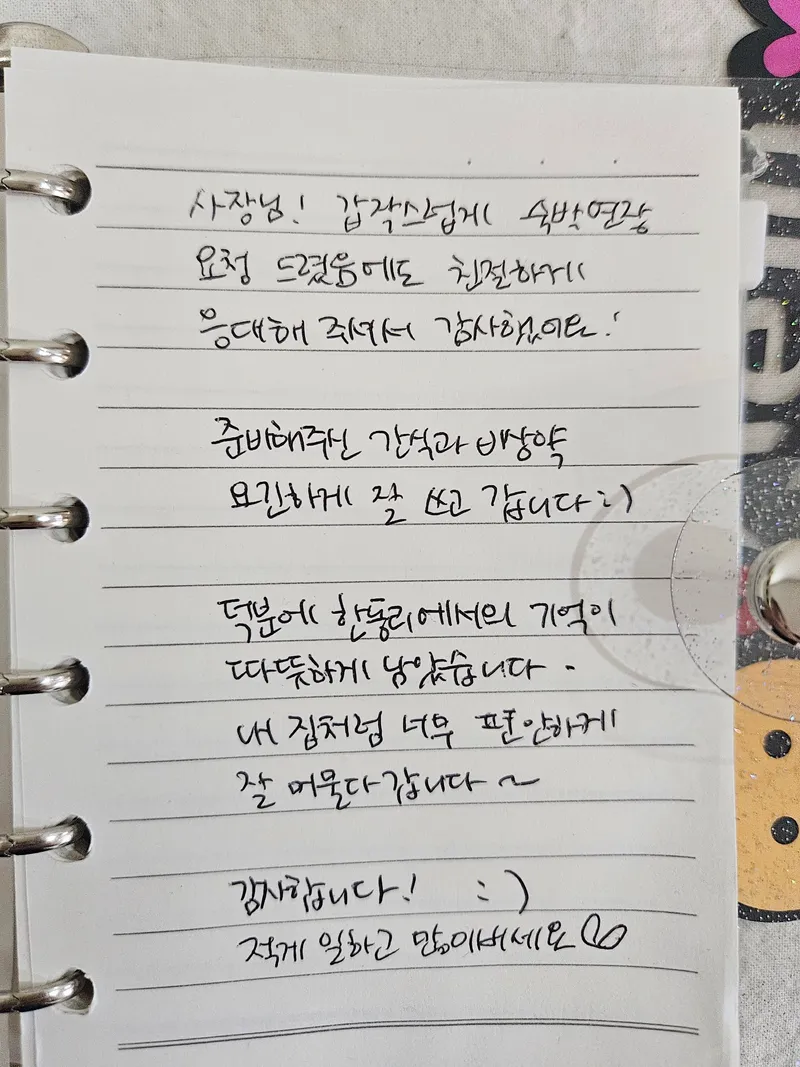 사장님! 갑작스럽게 숙박연장
요청 드렸음에도 친절하게
응대해 주셔서 감사했어요!
준비해주신 간식과 비상약
요긴하게 잘 쓰고 갑니다:)
덕분에 한동리에서의 기억이
따뜻하게 남았습니다.
내 집처럼 너무 편안하게
잘 머물다갑니다~
감사합니다! :)
적게 일하고 많이버세요♡